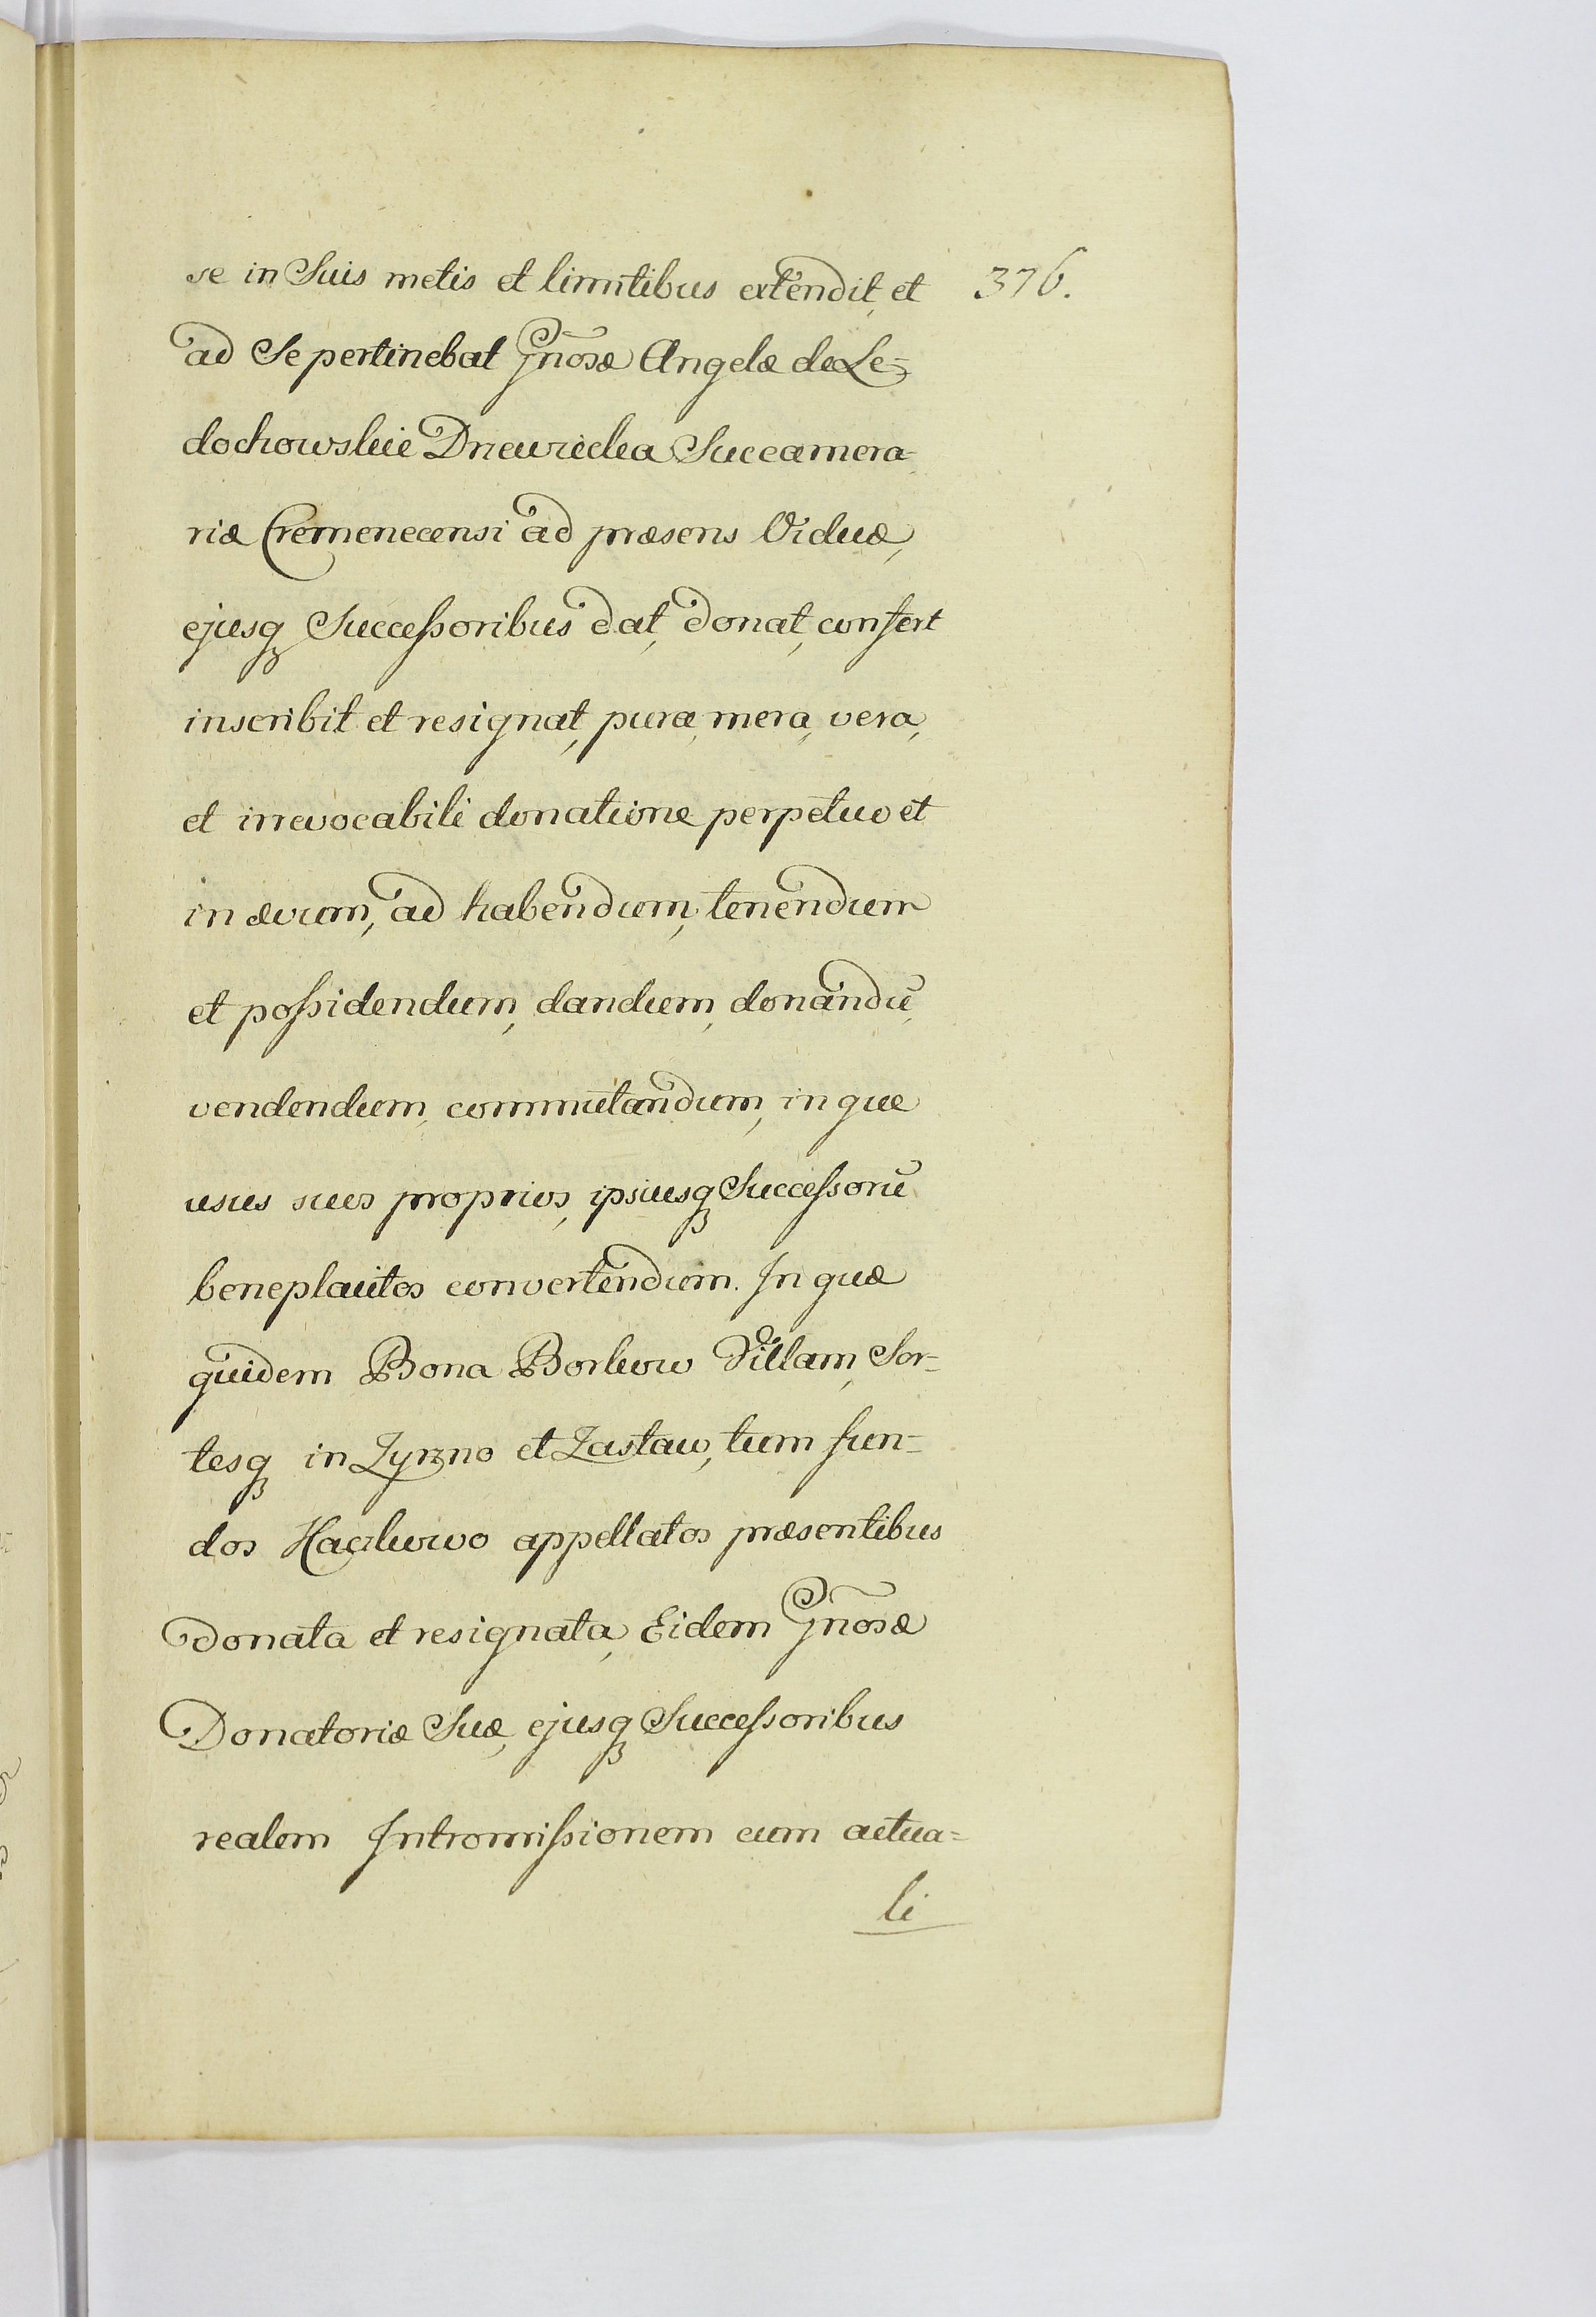 se in Suis metis et limitibus extendit, et 376.
ad Se pertinebat Gnosæ Angelæ de Le=
dochowskie Drewiecka Succamera=
riæ Cremenecensi ad præsens Viduæ,
ejusq Succeſsoribus dat, donat, confert
inscribit et resignat, pura, mera, vera,
et irrevocabili donatione perpetuo et
in ævum, ad habendum, tenendum
et poſsidendum, dandum, donandū,
vendendum, commutandum, in que
usus suos proprios, ipsiusq Succeſsorū
beneplacitos convertendum. In quæ
quidem Bona Borkow Villam, Sor=
tesq in Zyrzno et Zastaw, tum fun=
dos appellatos præsentibus
donata et resignata, Eidem Gnosæ
Donatoriæ Suæ, ejusq Succeſsoribus
realem Intromiſsionem cum actua=
li